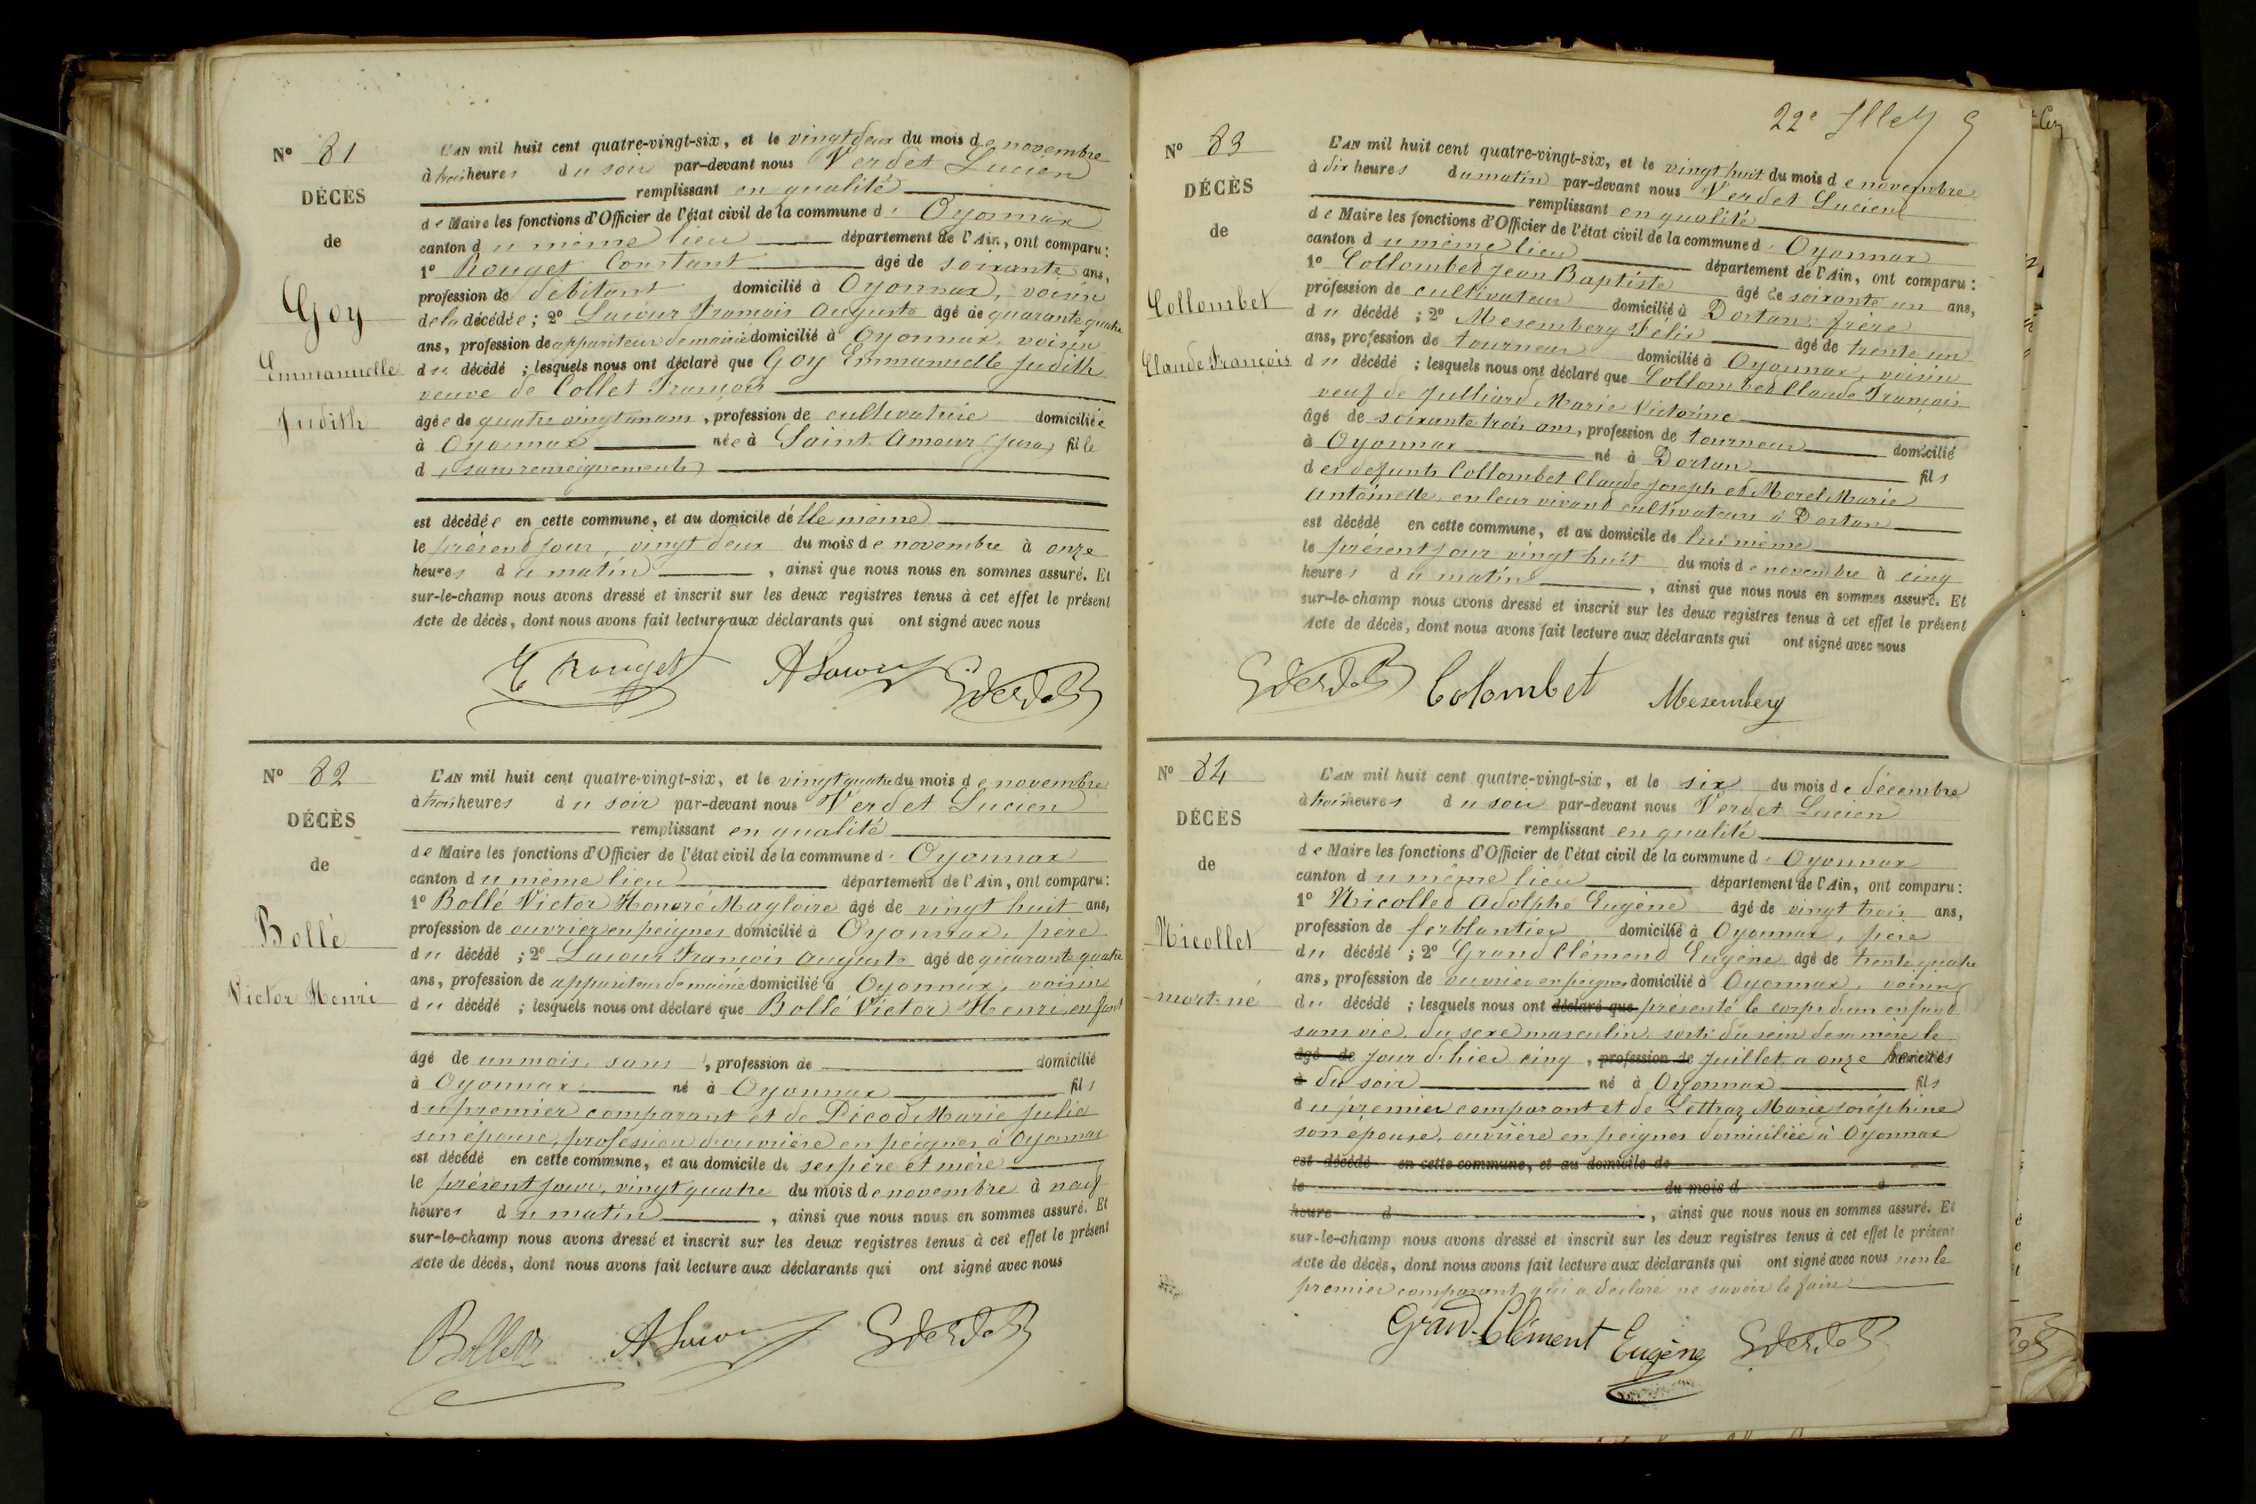 N° 81
DÉCÈS
de
Goy
Emmanuelle
Judith
L'AN mil huit cent quatre-vingt-six, et le vingt deux du mois de novembre
à trois heures du soir par-devant nous Verdet Lucien
remplissant en qualité
de Maire les fonctions d'Officier de l'état civil de la commune d' Oyonnax
canton du même lieu département de l'Ain, ont comparu :
1° Rouget Constant âgé de soixante ans,
profession de débitant domicilié à Oyonnax, voisin
de la décédée ; 2° Lacour François Auguste âgé de quarante quatre
ans, profession de appariteur de mairie domicilié à Oyonnax, voisin
du décédé ; lesquels nous ont déclaré que Goy Emmanuelle Judith
veuve de Collet François
âgée de quatre vingt un ans, profession de cultivatrice domiciliée
à Oyonnax née à Saint-Amour (Jura) fille
d (sans renseignements)
est décédée en cette commune, et au domicile d'elle même
le présent jour, vingt deux du mois de novembre à onze
heures du matin, ainsi que nous nous en sommes assuré. Et
sur-le-champ nous avons dressé et inscrit sur les deux registres tenus à cet effet le présent
Acte de décès, dont nous avons fait lecture aux déclarants qui ont signé avec nous
Rouget ALacour Verdet
N° 82
DÉCÈS
de
Bollé
Victor Henri
L'AN mil huit cent quatre-vingt-six, et le vingt quatre du mois de novembre
à trois heures du soir par-devant nous Verdet Lucien
remplissant en qualité
de Maire les fonctions d'Officier de l'état civil de la commune d' Oyonnax
canton du même lieu département de l'Ain, ont comparu :
1° Bollé Victor Honoré Magloire âgé de vingt huit ans,
profession de ouvrier en peignes domicilié à Oyonnax, père
du décédé ; 2° Lacour François Auguste âgé de quarante quatre
ans, profession de appariteur de mairie domicilié à Oyonnax, voisin
du décédé ; lesquels nous ont déclaré que Bollé Victor Henri, enfant
âgé de un mois, sans, profession de domicilié
à Oyonnax né à Oyonnax fils
du premier comparant et de Picod Marie Julie
son épouse, profession d'ouvrière en peignes à Oyonnax
est décédé en cette commune, et au domicile de ses père et mère
le présent jour, vingt quatre du mois de novembre à neuf
heures du matin, ainsi que nous nous en sommes assuré. Et
sur-le-champ nous avons dressé et inscrit sur les deux registres tenus à cet effet le présent
Acte de décès, dont nous avons fait lecture aux déclarants qui ont signé avec nous
ALacour Verdet
22e
N° 83
DÉCÈS
de
Collombet
Claude François
L'AN mil huit cent quatre-vingt-six, et le vingt huit du mois de novembre
à dix heures du matin par-devant nous Verdet Lucien
remplissant en qualité
de Maire les fonctions d'Officier de l'état civil de la commune d' Oyonnax
canton du même lieu département de l'Ain, ont comparu :
1° Collombet Jean Baptiste âgé de soixante un ans,
profession de cultivateur domicilié à Dortan, frère
du décédé ; 2° Mesemberg Félix âgé de trente un
ans, profession de tourneur domicilié à Oyonnax, voisin
du décédé ; lesquels nous ont déclaré que Collombet Claude François
veuf de Julliard Marie Victorine
âgé de soixante trois ans, profession de tourneur domicilié
à Oyonnax né à Dortan fils
des défunts Collombet Claude Joseph et Morel Marie
Antoinette, en leur vivant cultivateurs à Dortan
est décédé en cette commune, et au domicile de lui même
le présent jour vingt huit du mois de novembre à cinq
heures du matin, ainsi que nous nous en sommes assuré. Et
sur-le-champ nous avons dressé et inscrit sur les deux registres tenus à cet effet le présent
Acte de décès, dont nous avons fait lecture aux déclarants qui ont signé avec nous
Verdet Colombet Mesemberg
N° 84
DÉCÈS
de
Nicollet
mort-né
L'AN mil huit cent quatre-vingt-six, et le six du mois de décembre
à trois heures du soir par-devant nous Verdet Lucien
remplissant en qualité
de Maire les fonctions d'Officier de l'état civil de la commune d' Oyonnax
canton du même lieu département de l'Ain, ont comparu :
1° Nicollet Adolphe Eugène âgé de vingt trois ans,
profession de ferblantier domicilié à Oyonnax, père
du décédé ; 2° Grand Clément Eugène âgé de trente quatre
ans, profession de ouvrier en peignes domicilié à Oyonnax, voisin
du décédé ; lesquels nous ont déclaré que présenté le corps d'un enfant
sans vie, du sexe masculin, sorti du sein de sa mère le
âgé de jour d'hier cinq, profession de juillet à onze heures
à du soir né à Oyonnax fils
du premier comparant et de Lettraz Marie Joséphine
son épouse, ouvrière en peignes domiciliée à Oyonnax
est décédé en cette commune, et au domicile de
le du mois d à
heure d, ainsi que nous nous en sommes assuré. Et
sur-le-champ nous avons dressé et inscrit sur les deux registres tenus à cet effet le présent
Acte de décès, dont nous avons fait lecture aux déclarants qui ont signé avec nous non le
premier comparant qui a déclaré ne savoir le faire
Grand-Clément Eugène Verdet